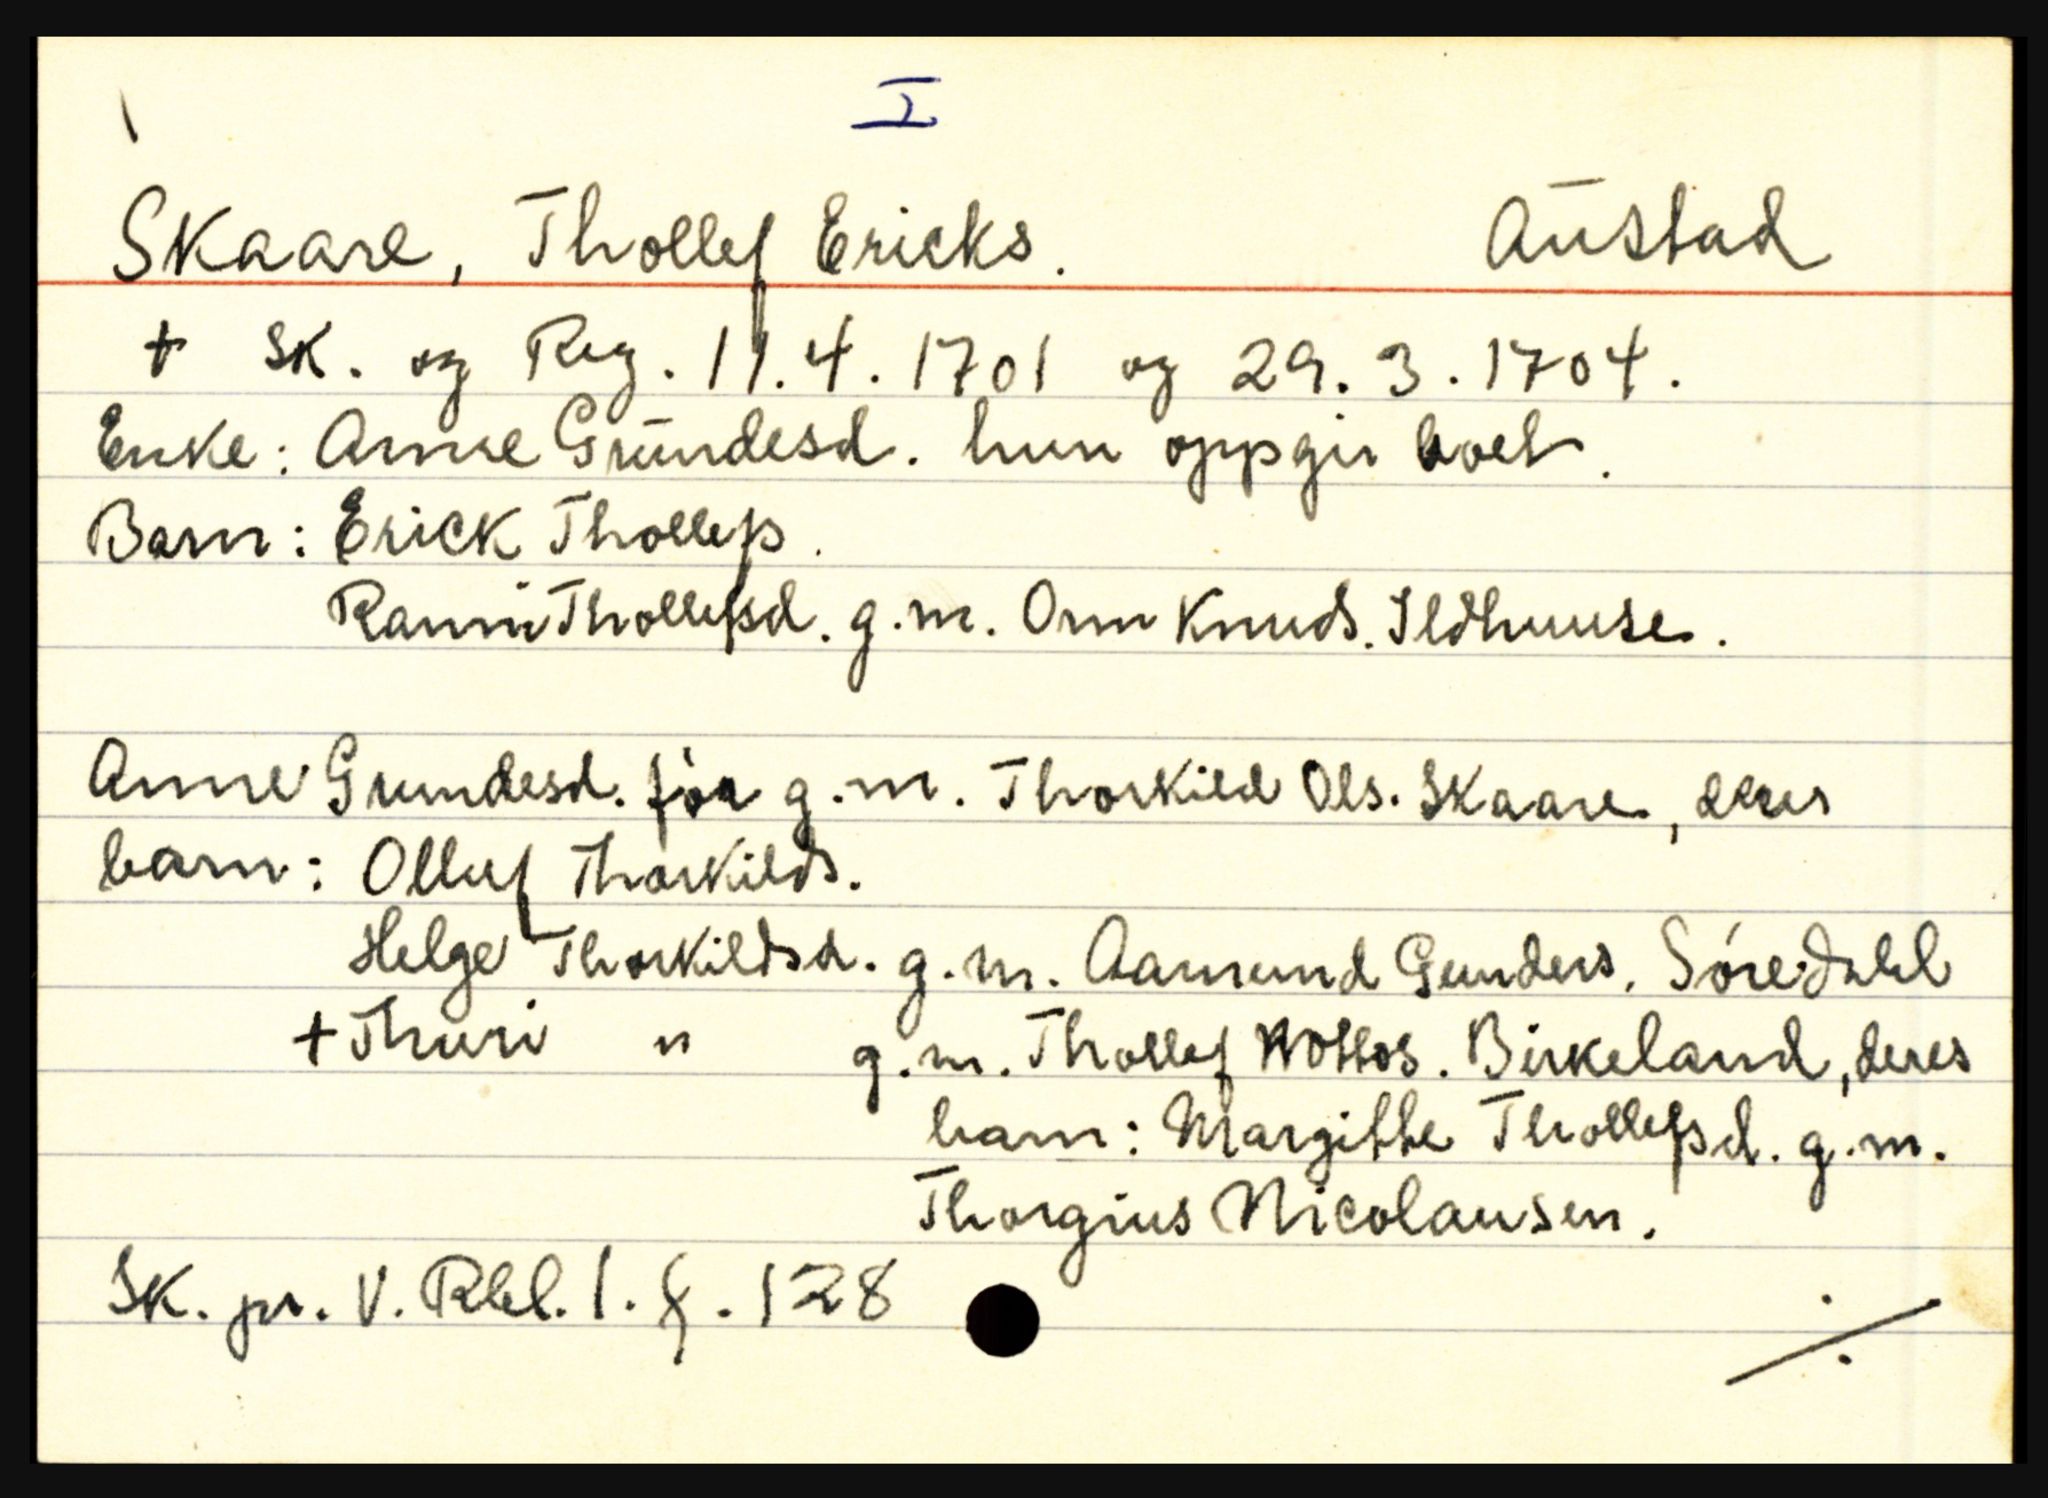 I
Skaare, Thollef Ericks. Austad
+ Sk. og Reg. 11.4.1701 og 29.3.1704.
Enke: Anne Grundesd. hun oppgir boet.
Barn: Erick Thollefs.
Ranni Thollefsd. g.m. Onn Knuds. Ildhuuse.
Anne Grundesd. før g.m. Thorkild Ols. Skaare, deres
barn: Olluf Thorkilds.
Helge Thorkildsd. g.m. Aamund Gunders. Söredahl
+ Thuri " g.m. Thollef Ottos. Birkeland, deres
barn: Margitte Thollefsd. g.m.
Thorgius Nicolausen.
Sk. pr. V. Rbl. 1. f. 128
./.